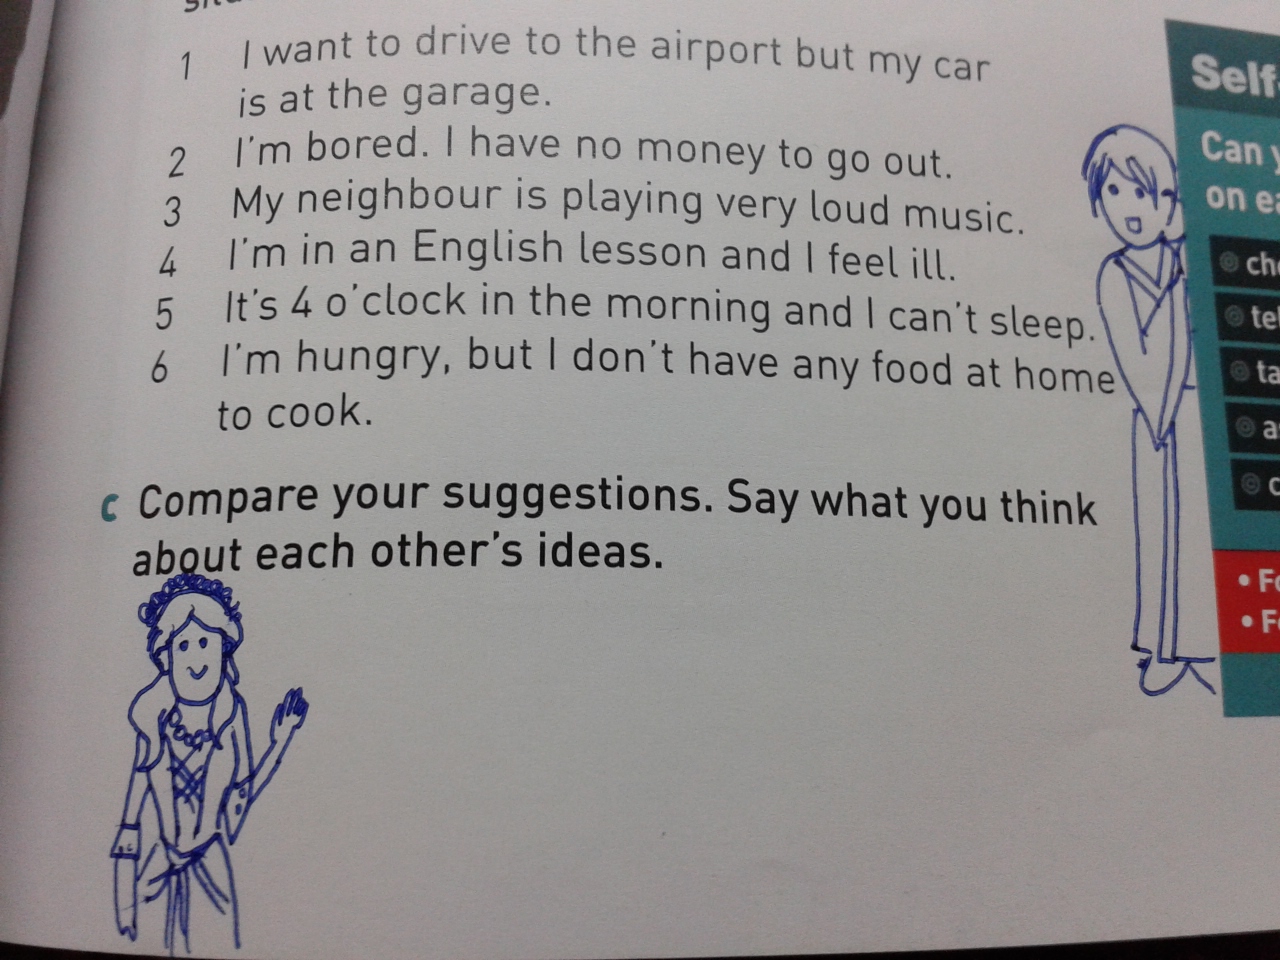 1 I want to drive to the airport but my car
is at the garage.
2 I'm bored. I have no money to go out.
3 My neighbour is playing very loud music.
4 I'm in an English lesson and I feel ill.
5 It's 4 o'clock in the morning and I can't sleep.
6 I'm hungry, but I don't have any food at home
to cook.
c Compare your suggestions. Say what you think
about each other's ideas.
Self
Can
on